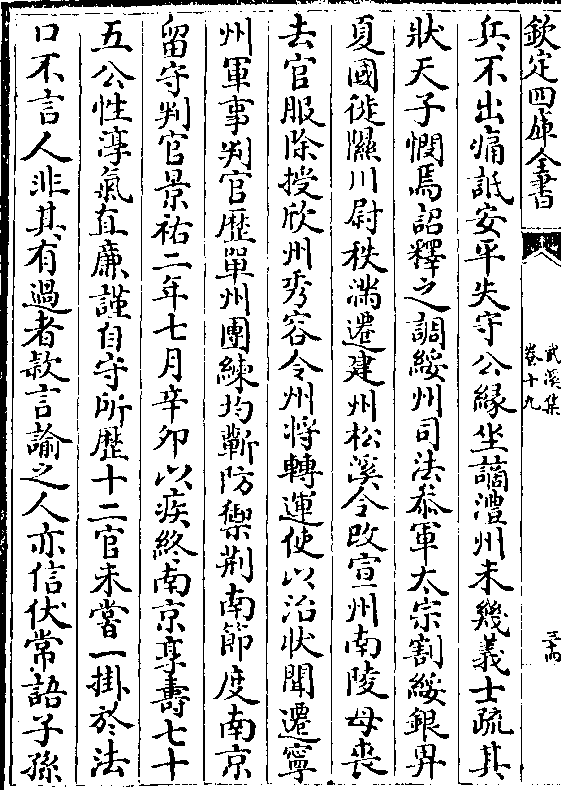 欽定四庫全書
武溪集
卷十九
三十四
兵不出痛詆安平失守公緣坐謫澧州未幾義士疏其
狀天子憫焉詔釋之調綏州司法叅軍太宗割綏銀畀
夏國徙隰川尉秩滿遷建州松溪令改宣州南陵母丧
去官服除授欣州秀容令州將轉運使以治狀聞遷寧
州軍事判官歴單州團練均蘄防禦荆南節度南京
留守判官景祐二年七月辛卯以疾終南京享壽七十
五公性淳氣直廉謹自守所歴十二官未嘗一掛於法
口不言人非其有過者欵言諭之人亦信伏常語子孫